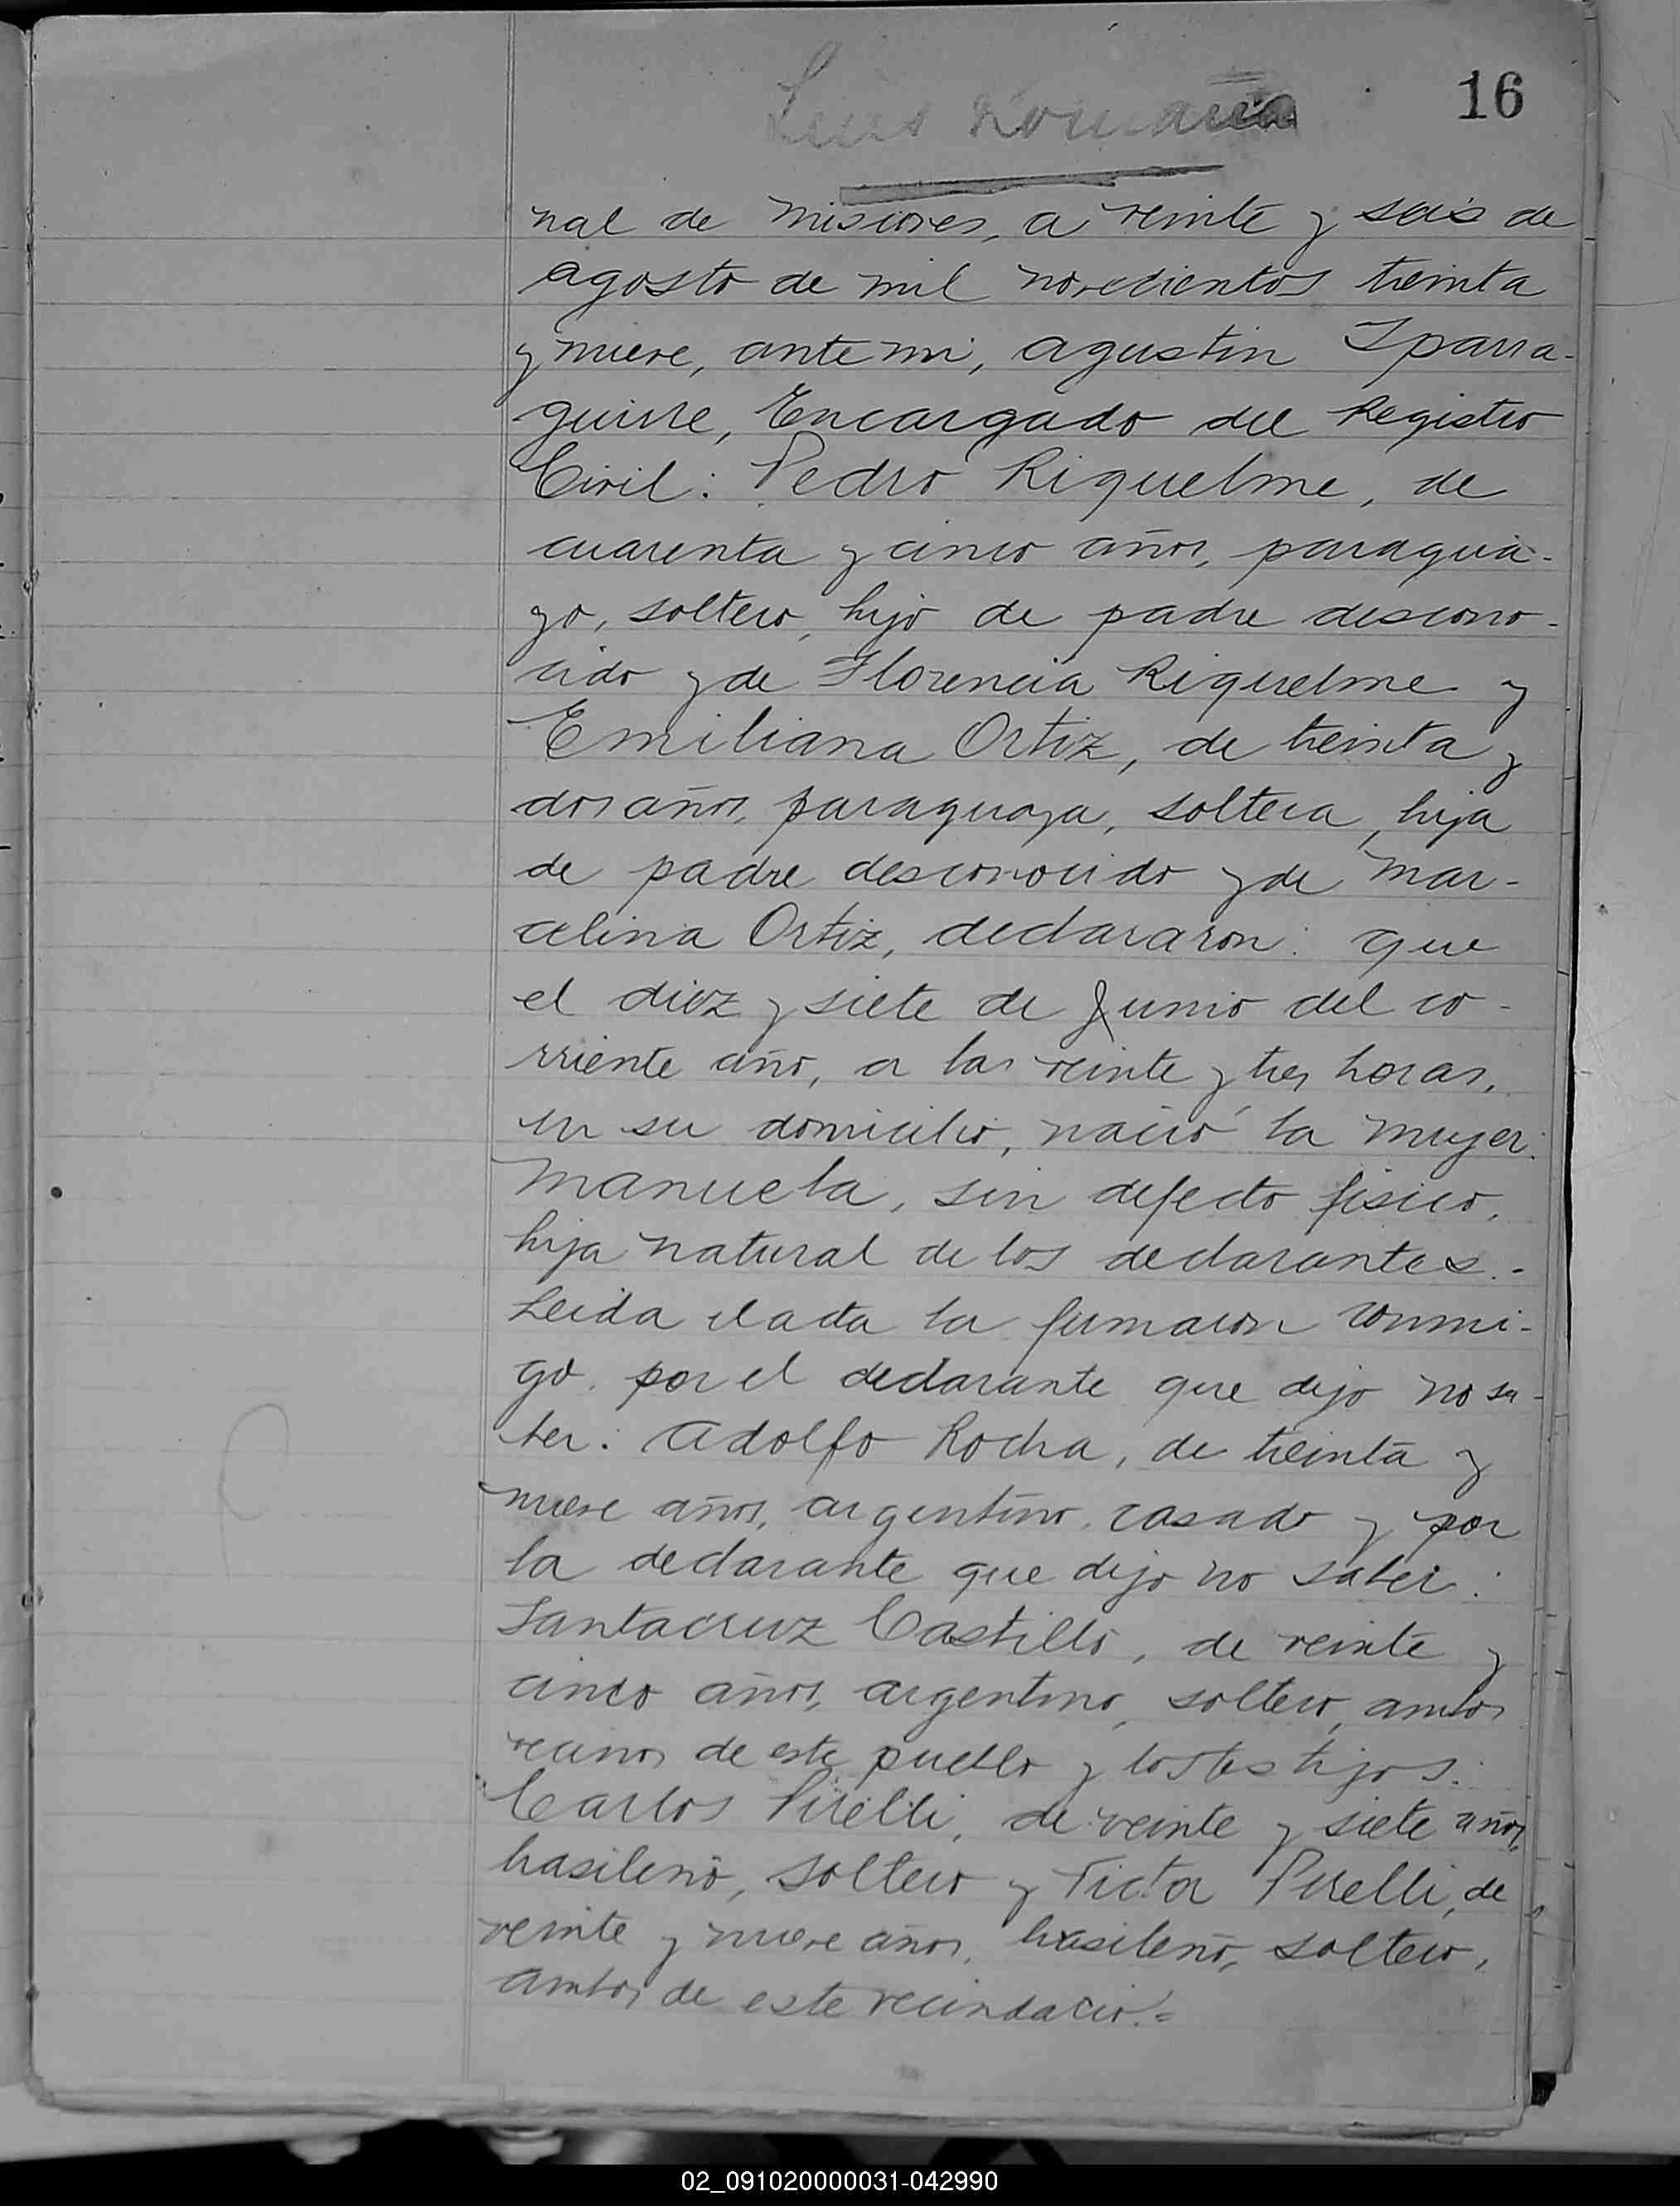 16
Luis
nal de Misiones, a veinte y seis de
agosto de mil novecientos treinta
y nueve, ante mi, Agustin Iparra-
guirre, Encargado del Registro
Civil: Pedro Riquelme, de
cuarenta y cinco años, paragua-
yo, soltero, hijo de padre descono-
cido y de Florencia Riquelme y
Emiliana Ortiz, de treinta y
dos años, paraguaya, soltera, hija
de padre desconocido y de Mar-
celina Ortiz, declararon: que
el diez y siete de Junio del co-
rriente año, a las veinte y tres horas,
en su domicilio, nació la mujer:
Manuela, sin defecto fisico,
hija natural de los declarantes.-
Leida el acta la firmaron conmi-
go. por el declarante que dijo no sa-
ber: Adolfo Rocha, de treinta y
nueve años, argentino, casado y por
la declarante que dijo no saber:
Santacruz Castillo, de veinte y
cinco años, argentino, soltero, ambos
vecinos de este pueblo y los testigos:
Carlos Pirelli, de veinte y siete años,
brasileño, soltero y Victor Pirelli, de
veinte y nueve años, brasileño, soltero,
ambos de este vecindario.=
02_091020000031-042990